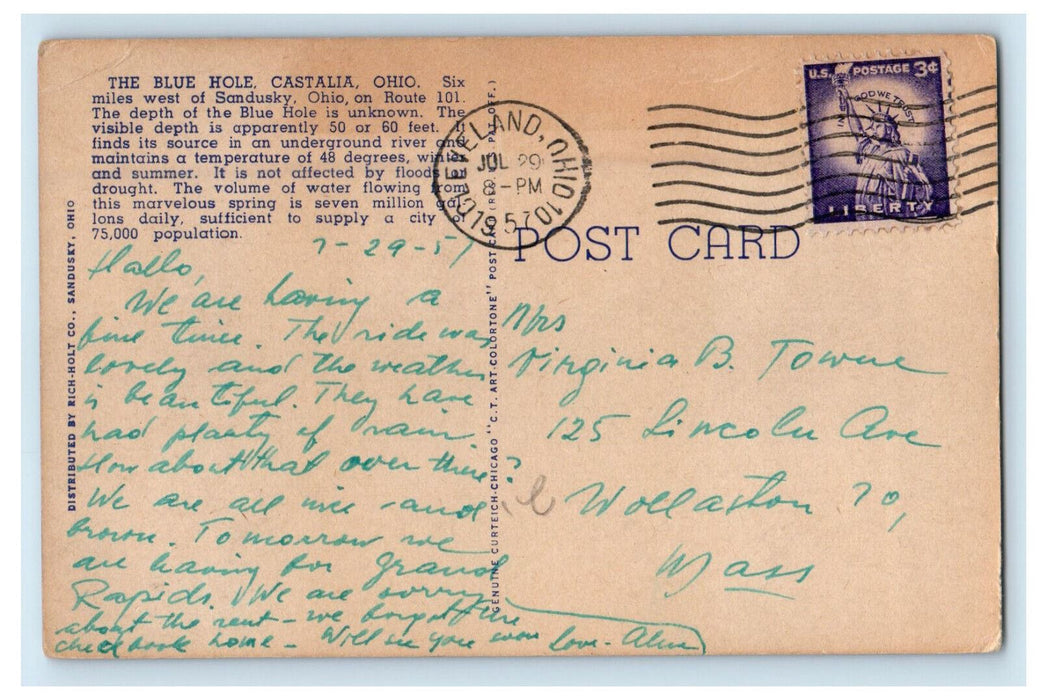 THE BLUE HOLE, CASTALIA, OHIO. Six
miles west of Sandusky, Ohio, on Route 101.
The depth of the Blue Hole is unknown. The
visible depth is apparently 50 or 60 feet. I
finds its source in an underground river and
maintains a temperature of 48 degrees, winte
and summer. It is not affected by floods
drought. The volume of water flowing from
this marvelous spring is seven million gal
lons daily, sufficient to supply a city of
75,000 population.
DISTRIBUTED BY RICH-HOLT CO., SANDUSKY, OHIO
7-29-57
Hallo,
We are having a
fine time. The ride was
lovely and the weather
is beautiful. They have
had plenty of rain.
How about that over there?
We are all nice and
brown. Tomorrow we
are leaving for Grand
Rapids. We are sorry
about the rent - we forgot the
checkbook home - Will see you soon
love -
GENUINE CURTEICH-CHICAGO "C.T. ART-COLORTONE" POST CARD (REG. U.S. PAT. OFF.)
CLEVELAND, OHIO 101
JUL 29
8 - PM
1957
U.S. POSTAGE 3¢
IN GOD WE TRUST
LIBERTY
POST CARD
Mrs
Virginia B. Towne
125 Lincoln Ave
Wollaston 70,
Mass